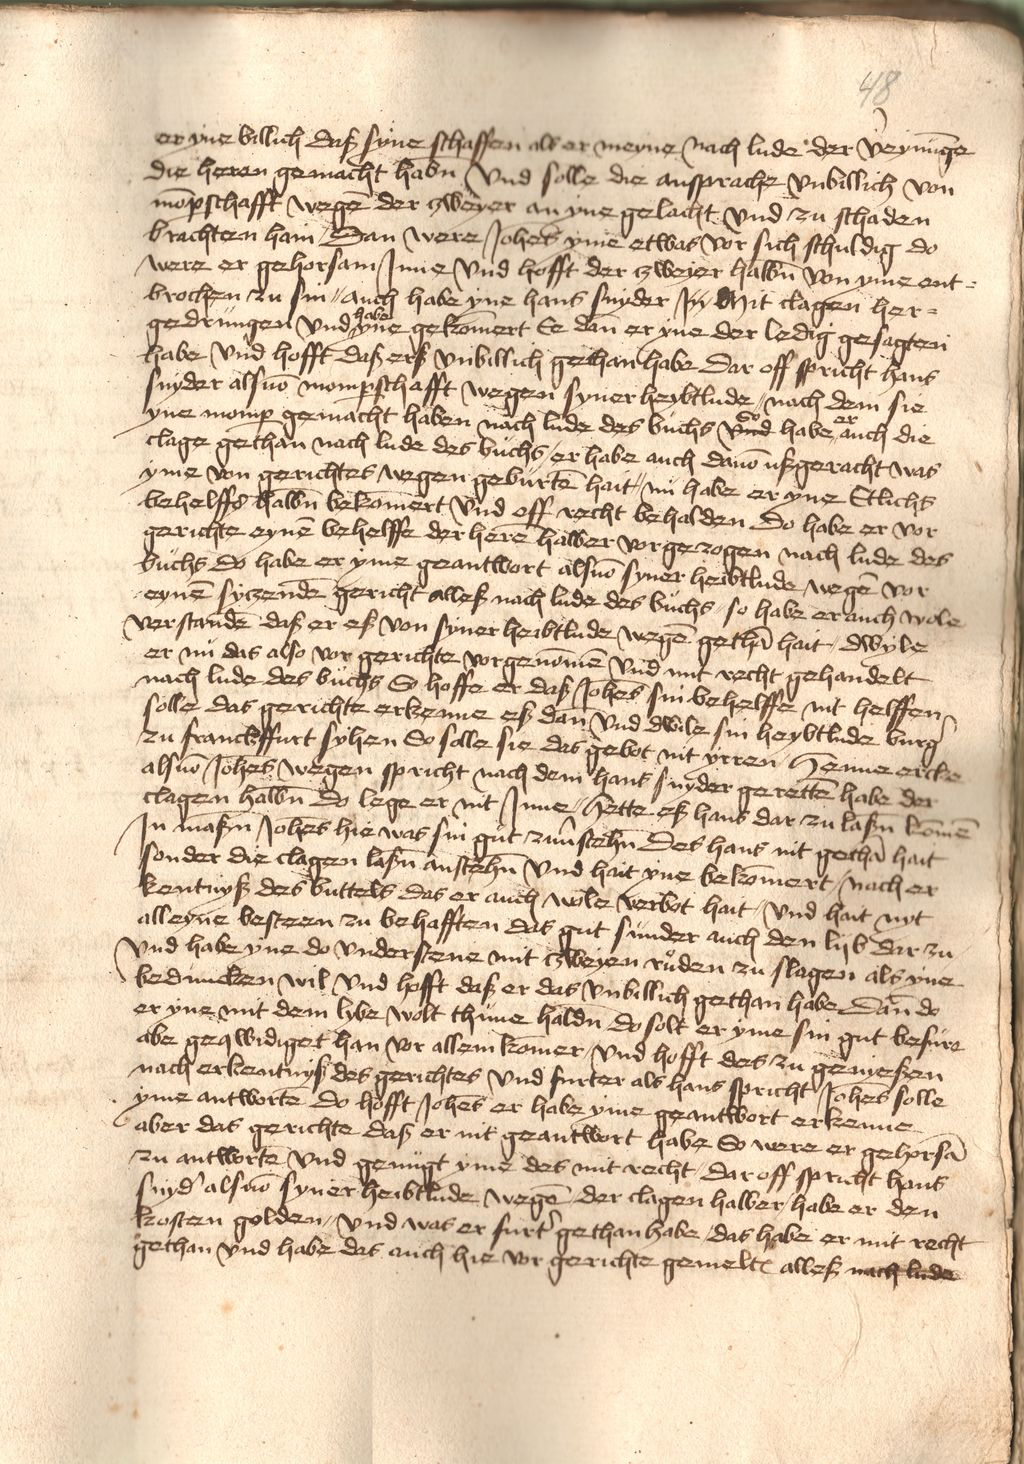 48
er yne billich daß syne schaffen als er meyne nach lude der Veynunge
die heren gemacht habn Und solle die ansprache Unbillich von
mōpschafft wegē der zweyer an yne gelacht Und zu schaden
brachten hain / Dan were Johēs yme etwas vor sich schuldig do
were er gehorsam Inne Und hofft der zweier halbn von yme ent-
brochen zu sin / auch habe yne hans snyder mit clagen her-
gedrungen Und habe yne gekōmert Ee dan er yne der ledig gesagten
habe Und hofft daß erß Unbillich gethan habe Dar off spricht hans
snyder alsuō mompschafft wegen syner heybtlude / nach dem sie
yne momp gemacht haben nach lude des buchs Und so habe er auch die
clage gethan nach lude des buchs / er habe auch dauō ußgeracht was
yme von gerichtes wegen geburtē hait / nu habe er yne Etlichs
behelffs halbn bekōmert Und off recht behalden Do habe er vor
gerichte eynē behelffe der herē halber vorgezogen nach lude des
buchs Do habe er yme geantwort alsuō syner heibtlude wegē vor
eynē syczendē gericht alleß nach lude des buchs / so habe er auch wole
verstandē daß er eß von syner heibtlude wegē gethā hait / dwyle
er nu das also vor gerichte vorgenōmē Und mit recht gehandelt
nach lude des buchs So hoffe er daß Johēs sin behelffe nit helffen
solle das gerichte erkenne eß dan Und dwile sin heybtlude burg'
zu franckffurt syhen So solle sie das gebot nit yrren Henne ercke
alsuō Johēs wegen spricht nach dem hans snyder gerettē habe der
clagen halbn do lege er nit Inne / Hette eß hans dar zu laßn kōmē
In maßn Johēs hie was sin gut zuuerstehn Des hans nit gethā hait
sonder die clagen laßn anstehn Und hait yne bekōmert / nach er
kentnyß des buttels das er auch wole verbot hait / Und hait nyt
alleyne besteen zu behafften das gut sunder auch den lyb dar zu
Und habe yne do Understene mit zweyen ruden zu slagen als yne
beduncken wil Und hofft daß er das Unbillich gethan habe Dan do
er yne mit dem lybe wolt thune haldn do solt er yme sin gut befure
abe geqwidiget han vor allem kōmer / Und hofft des zu genyeßen
nach erkentnyß des gerichtes Und furter als hans spricht Johēs solle
yme antwortē Do hofft Johēs er habe yme geantwort erkenne
aber das gerichte daß er nit geantwort habe So were er gehorsā
zu antwortē Und genugt yme des mit recht / dar off spricht hans
snyd' alsuō syner heibtlude wegē der clagen halber / habe er den
kosten golden / Und was er furt' gethan habe / das habe er mit recht
gethan Und habe das auch hie vor gerichte gemelt alleß nach lude